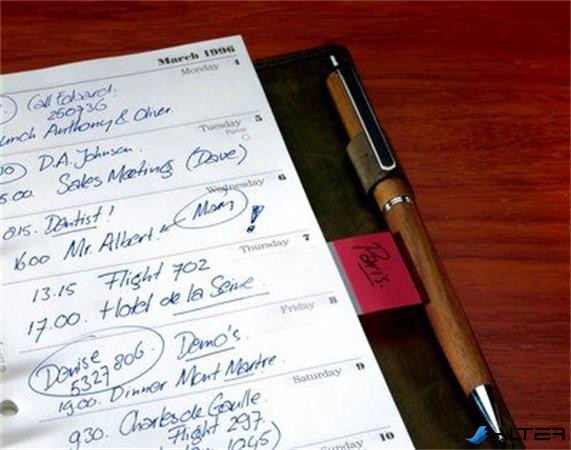 March 1996
Monday 4
Call Edward.
250736
Lunch Anthony & Oliver.
Tuesday 5
D.A. Johnson.
Sales Meeting (Dave)
Wednesday 6
815. Dentist!
Mam
1600 Mr. Albert.
!
Thursday 7
13.15 Flight 702
17.00. Hotel de la Seine
Paris.
Friday 8
Denise
5327806.
Demo's.
1900. Dinner Mont Martre.
Saturday 9
930. Charles de Gaulle.
Flight 297.
1245)
Sunday 10
ALTER